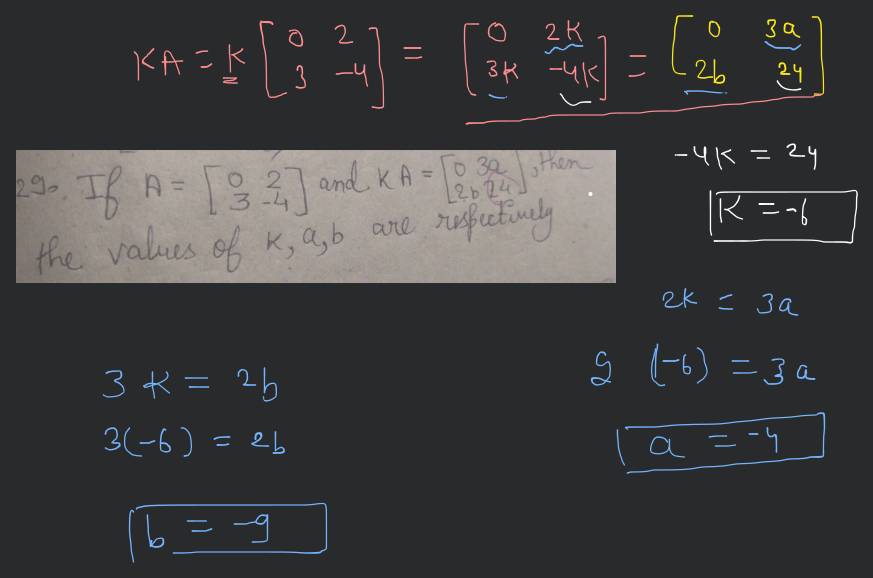 KA = K [0 2 3 -4] = [0 2K 3K -4K] = [0 3a 2b 24]
29. If A = [0 2 3 -4] and KA = [0 3a 2b 24], then
the values of K, a, b are respectively
-4K = 24
K = -6
2K = 3a
2 (-6) = 3a
a = -4
3K = 2b
3(-6) = 2b
b = -9